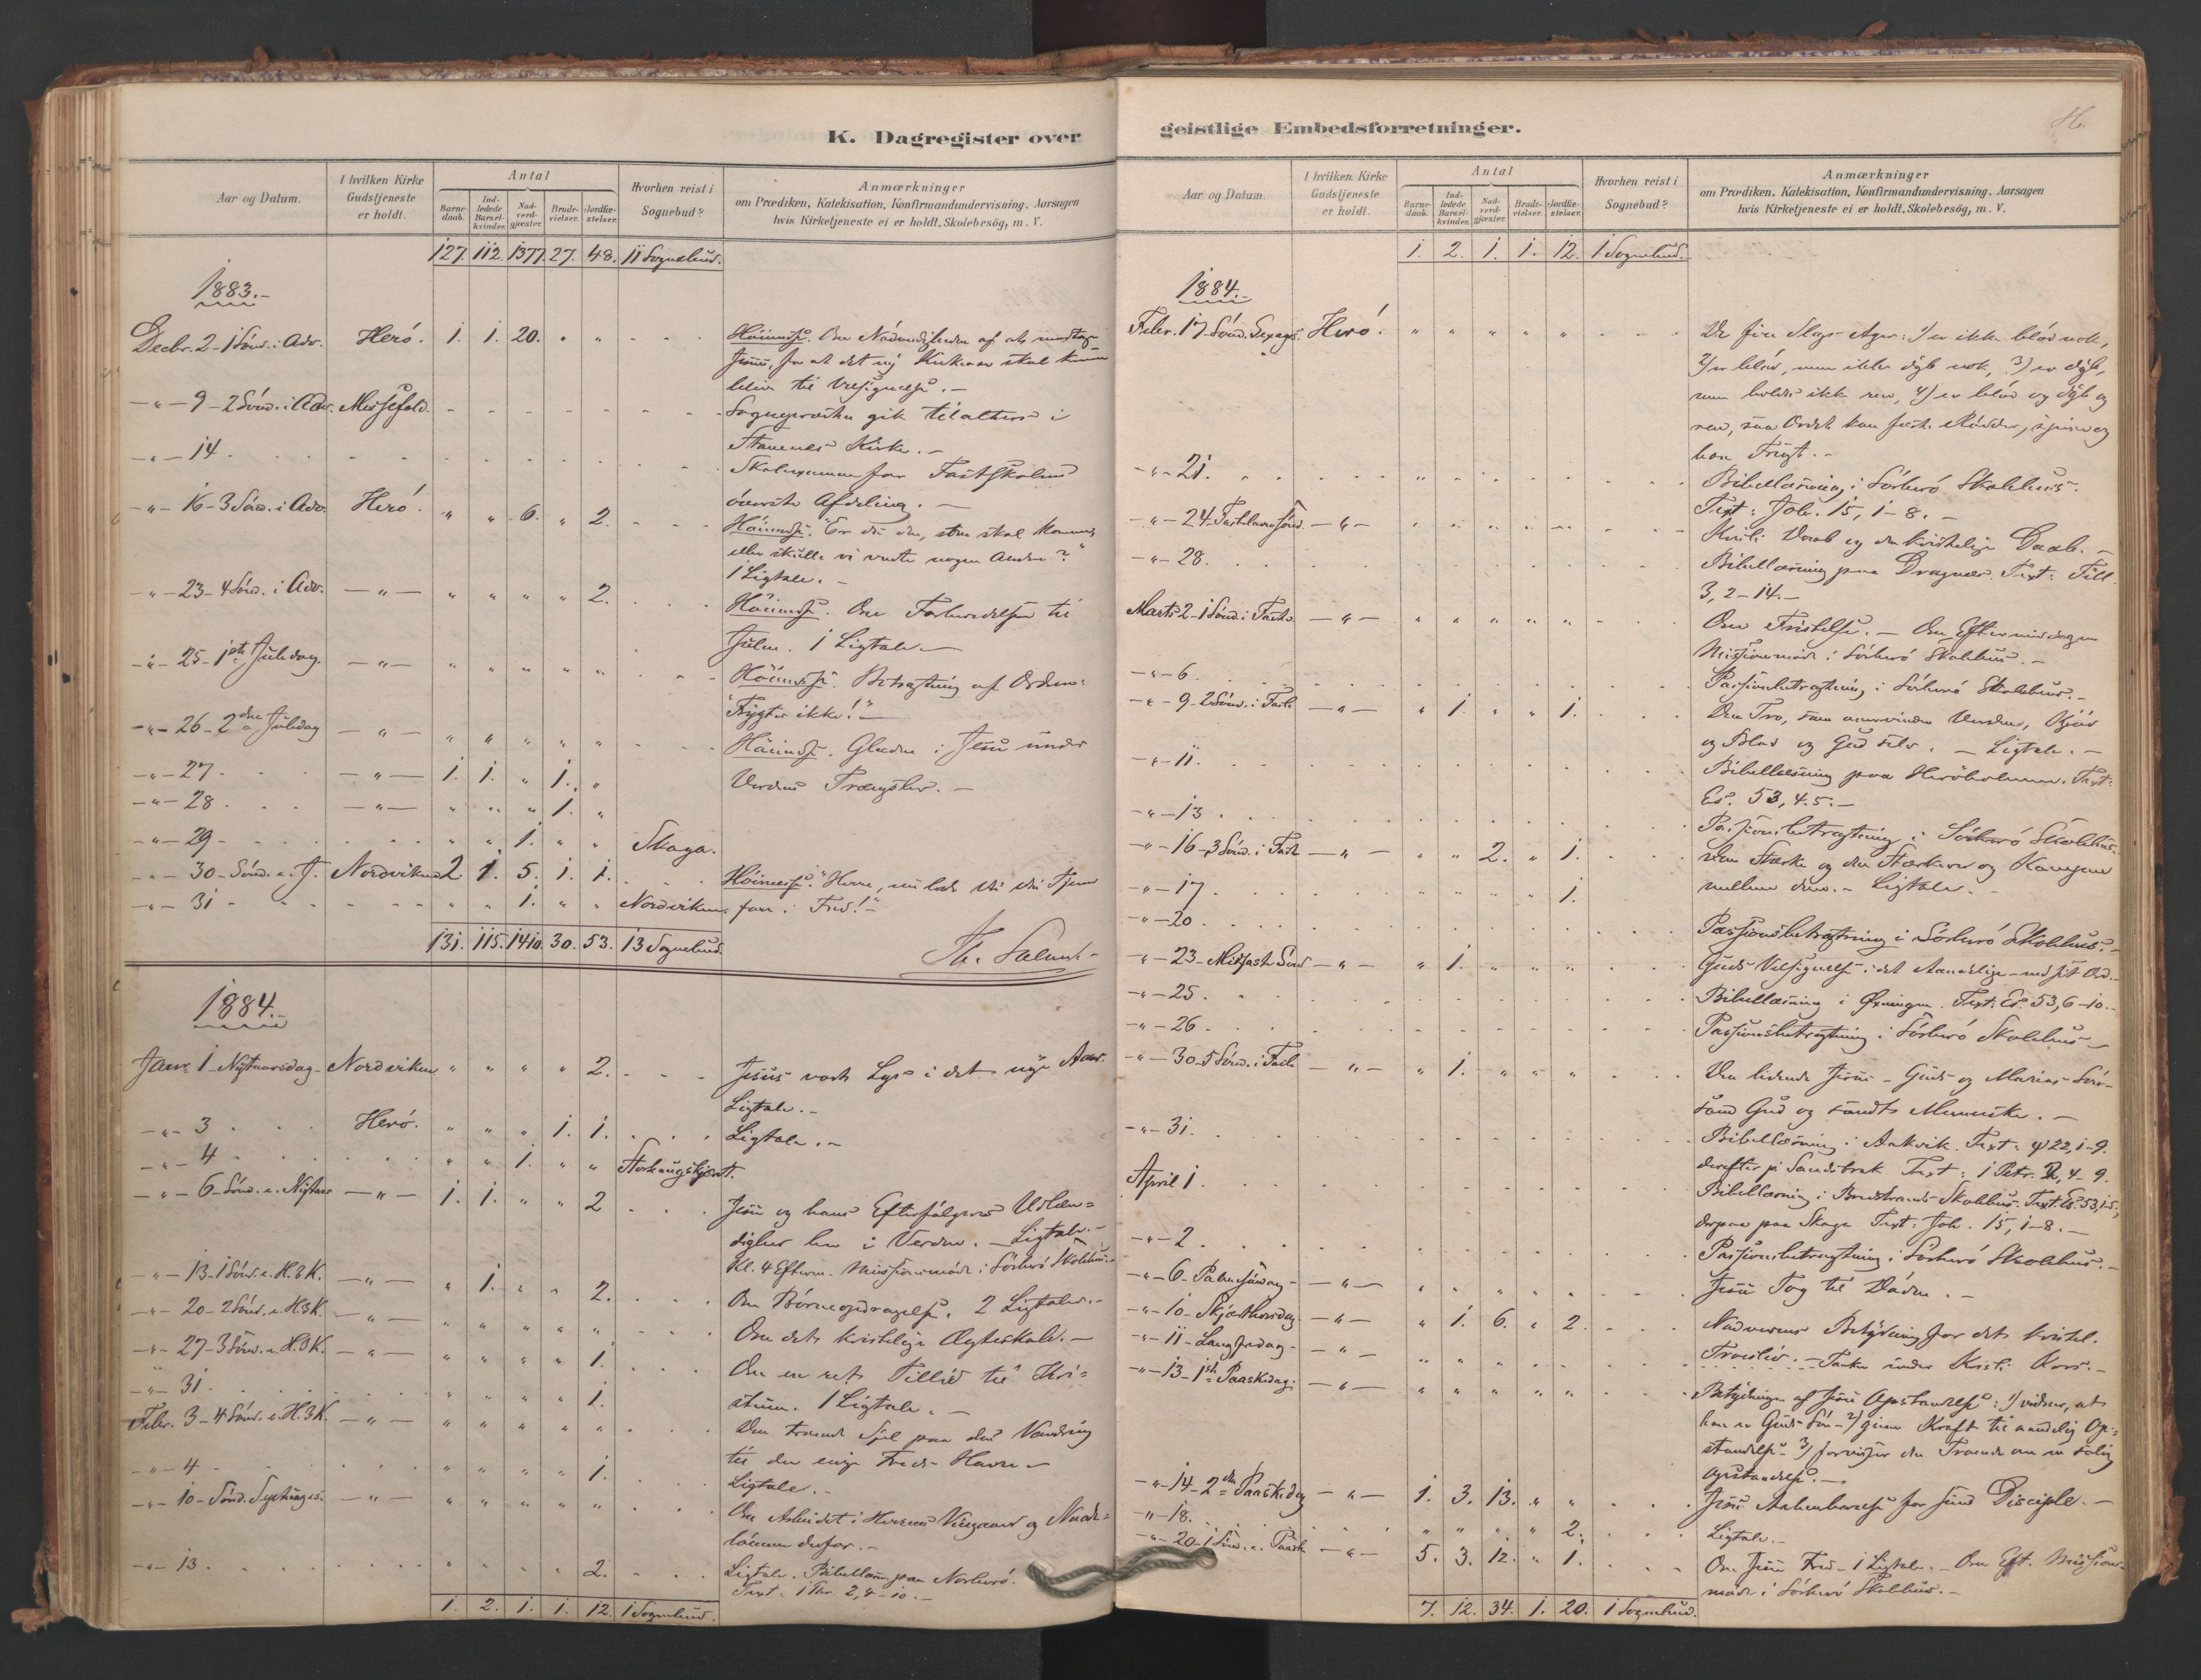 K. Dagregister over
Aar og Datum.
I hvilken Kirke Gudstjeneste er holdt.
Antal
Barne-daab.
Ind-ledede Barsel-kvinder.
Nad-verd-gjæster.
Brude-vielser.
Jordfæ-stelser.
Hvorhen reist i Sognebud?
Anmærkninger
om Prædiken, Katekisation, Konfirmandundervisning, Aarsagen
hvis Kirketjeneste ei er holdt, Skolebesög, m. V.
127. 112. 1377. 27. 48. 11 Sognebud.
1883.-
Decbr. 2 - 1 Sönd. i Adv. Herö. 1. 1. 20. " " Höimesse. Om Nödvendigheden af at modtage
Jesum, for at det ny Kirkeaar skal kunne
blive til Velsignelse.-
-"- 9 - 2 Sönd. i Adv. Messefald. Sognepræsten gik tilalters i
Stamnes Kirke.-
-"- 14 Skoleexamen for Fastskolens
överste Afdeling.-
-"- 16 - 3 Sönd. i Adv. Herö. " " 6. " 2. Höimesse. "Er du den, som skal komme,
eller skulle vi vente nogen Anden?"
1 Ligtale.-
-"- 23 - 4 Sönd. i Adv. -"- " " " " 2. Höimesse. Om Forberedelsen til
Julen. 1 Ligtale.-
-"- 25 - 1ste Juledag. -"- " " " " " Höimesse. Betragtning af Ordene:
"Frygter ikke!"-
-"- 26 - 2den Juledag -"- " " " " " Höimesse. Glæden i Jesu under
Verdens Trængsler.-
-"- 27 -"- 1. 1. " 1. "
-"- 28 -"- " " " 1. "
-"- 29 " " 1. " " Skaga.
-"- 30 - Sönd. e. J. Nordviken 2. 1. 5. 1. 1. Höimesse. "Herre, nu lader du din Tjener
-"- 31 " " 1. " " Nordviken. fare i Fred!"-
131. 115. 1410. 30. 53. 13 Sognebud.
1884.-
Janr. 1 - Nytaarsdag - Nordviken " " " " 2. Jesus vort Lys i det nye Aar.
Ligtale.-
-"- 3 Herö. " " " 1. 1. Ligtale.-
-"- 4 " " 1. " "
-"- 6 - Sönd. e. Nytaar -"- 1. 1. " " 2 Jesu og hans Efterfölgeres Udlæn=
dighed her i Verden.- Ligtale.-
Kl. 4 Efterm. Missionsmöde i Sörherö Skolehus.-
-"- 13 - 1 Sönd. e. H.3K. -"- " 1. " " 2. Om Börneopdragelse. 2 Ligtaler.-
-"- 20 - 2 Sönd. e. H.3K. -"- " " " " " Om det kristelige Ægteskab.-
-"- 27 - 3 Sönd. e. H.3K. -"- " " " " 1. Om en ret Tillid til Kri=
stum. 1 Ligtale.-
-"- 31 " " " " 1.
Febr. 3 - 4 Sönd. e. H.3K. -"- " " " " " Den troende Sjel paa den Vandring
til den evige Freds Havn.-
-"- 4 " " " " 1. Ligtale.-
-"- 10 - Sönd. Septuages. -"- " " " " " Om Arbeidet i Herrens Viingaard og Naade=
lönnen derfor.-
-"- 13 " " " " 2. Ligtale. Bibellæsn. paa Norherö.
Text. 2,4-10.-
1. 2. 1. 1. 12. 1 Sognebud.
geistlige Embedsforretninger.
Aar og Datum.
I hvilken Kirke Gudstjeneste er holdt.
Antal
Barne-daab.
Ind-ledede Barsel-kvinder.
Nad-verd-gjæster.
Brude-vielser.
Jordfæ-stelser.
Hvorhen reist i Sognebud?
Anmærkninger
om Prædiken, Katekisation, Konfirmandundervisning, Aarsagen
hvis Kirketjeneste ei er holdt, Skolebesög, m. V.
1. 2. 1. 1. 12. 1 Sognebud.
1884.-
Febr. 17 - Sönd. Sexages. Herö. " " " " " De fire Slags Agre: 1) er ikke blöd nok,
2) er blöd, men ikke dyb nok, 3) er dyb,
men holdes ikke ren, 4) er blöd og dyb og
ren, saa Ordet kan fæste Rödder, spire og
bære Frugt.-
-"- 21. Bibellæsning i Sörherö Skolehus.
Text: Joh. 15, 1-8.-
-"- 24 - Fastelavns Sönd. -"- Kristi Daab og den kristelige Daab.-
-"- 28. Bibellæsning paa Dragnæs. Text: Fill.
3, 2-14.-
Marts 2 - 1 Sönd. i Faste. -"- " " " " " Om Fristelse.- Om Eftermiddagen
Missionsmöde i Sörherö Skolehus.-
-"- 6. Passionsbetragtning i Sörherö Skolehus.-
-"- 9 - 2 Sönd. i Faste -"- " 1. " " 1. Den Tro, som overvinder Verden, Kjöd
og Blod og Gud selv.- Ligtale.-
-"- 11. Bibellæsning paa Heröholmen. Text:
Es. 53, 4.5.-
-"- 13. Passionsbetragtning i Sörherö Skolehus.-
-"- 16 - 3 Sönd. i Faste -"- " " 2. " 1. Den Stærke og den Stærkere og Kampen
mellem dem.- Ligtale.-
-"- 17. 1.
-"- 20. Passionsbetragtning i Sörherö Skolehus.-
-"- 23 - Midfaste Sönd -"- " 1. " " " Guds Velsignelse i det Aandelige - ved sit Ord.-
-"- 25. Bibellæsning i Øxningen. Text: Es. 53, 6-10.-
-"- 26. Passionsbetragtning i Sörherö Skolehus.-
-"- 30 - 5 Sönd. i Faste -"- " 1. " " " Den lidende Jesus - Guds og Marias Sön -
sand Gud og sandt Menneske.-
-"- 31. Bibellæsning i Aakvik. Text: ψ 22, 1-9.
derefter på Sandsbrek Text: 1 Petr. 2, 4-9.
April 1. Bibellæsning i Skolehus. Text: Es. 53, 1-5,
derpaa paa Skaga Text: Joh. 15, 1-8.-
-"- 2. Passionsbetragtning i Sörherö Skolehus.-
-"- 6 - Palmesöndag - -"- " " " " " Jesu Tog til Döden.-
-"- 10 - Skjærthorsdag -"- " 1. 6. " 2. Nadverens Betydning for det kristel.
-"- 11 - Langfredag - -"- " " " " " Troesliv.- Tanker under Kristi Kors.-
-"- 13 - 1ste Paaskedag. -"- " " " " " Betydningen af Jesu Opstandelse: 1) vidner, at
han er Guds Sön - 2) giver Kraft til aandelig Op=
standelse - 3) forvisser den Troende om en salig
Opstandelse.-
-"- 14 - 2den Paaskedag -"- 1. 3. 13. " " Jesu Aabenbarelse for sine Disciple.-
-"- 18. " " " " 2. Ligtale.-
-"- 20 - 1 Sönd. e. Paaske -"- 5. 3. 12. " 1. Om Jesu Fred - 1 Ligtale.- Om Eft. Missions-
möde i Sörherö Skolehus.-
7. 12. 34. 1. 20. 1 Sognebud.